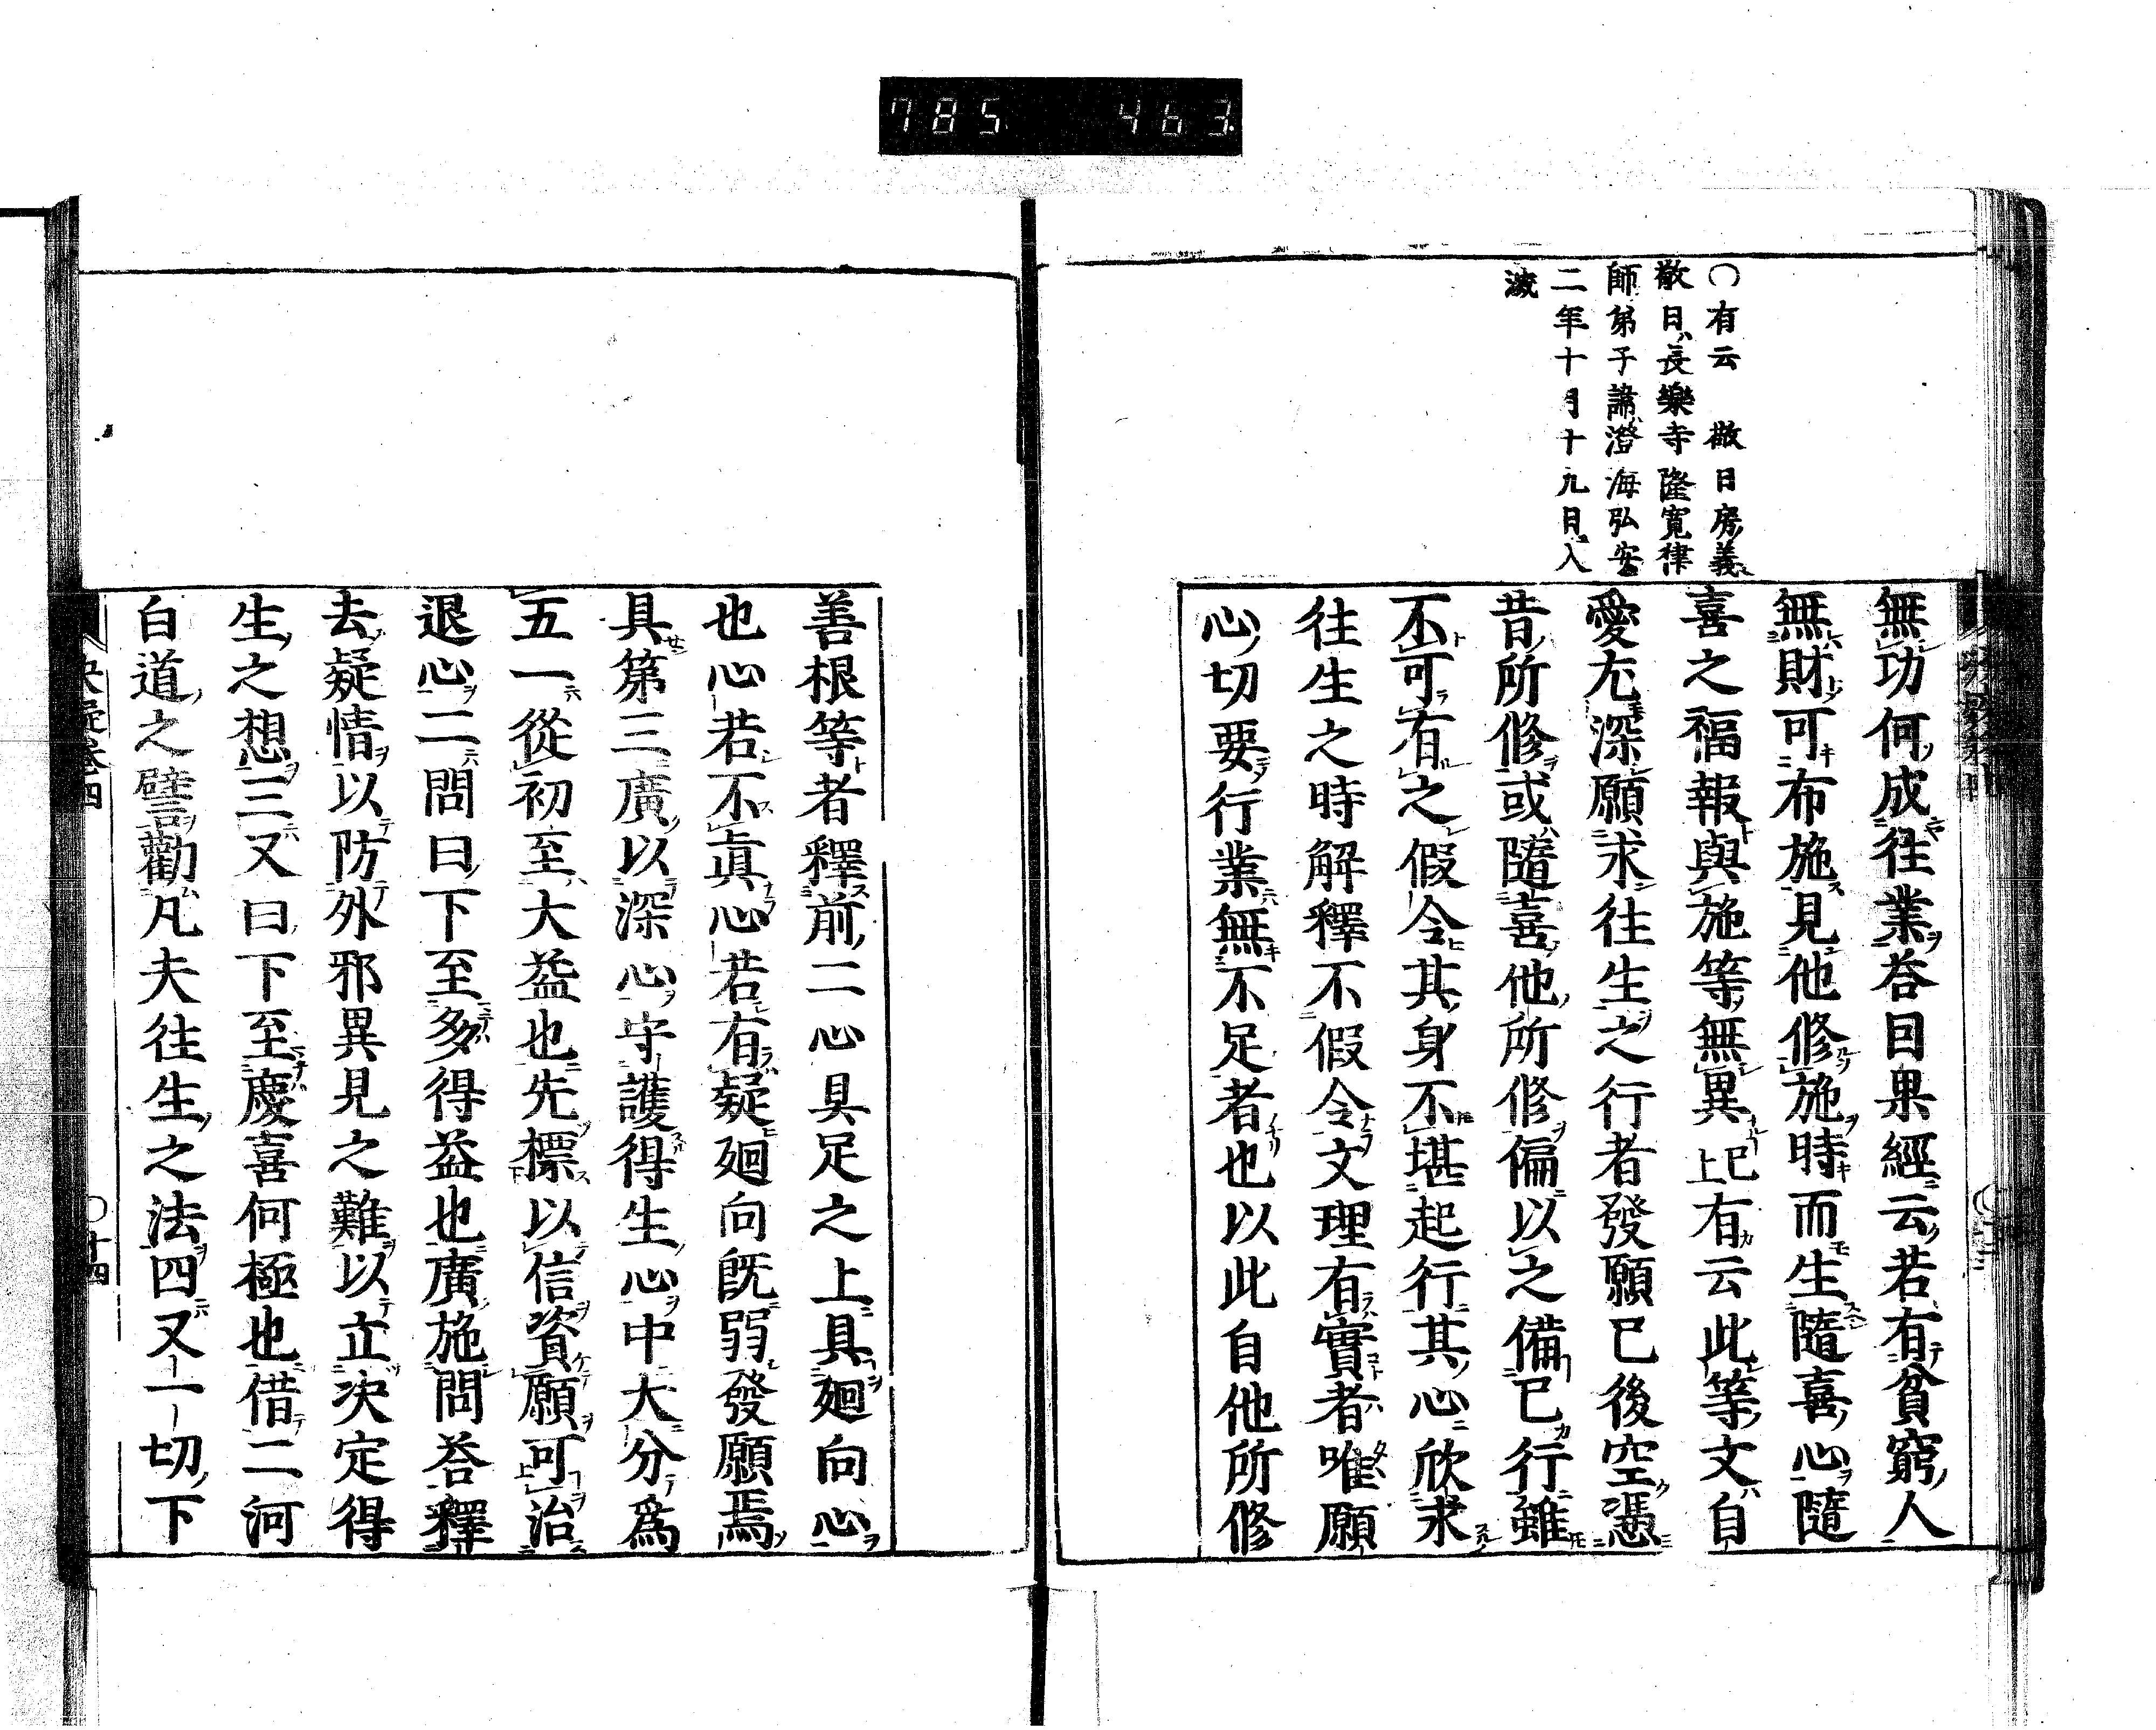 785 463
〇有云 敬日房義
敬日長樂寺隆寬律
師弟子諱澄海弘安
二年十月十九日入
滅
無功何成往業答曰果經云若有貧窮人
無財可布施見他修施時而生隨喜心隨
喜之福報與施等無異已上有云此等文自
愛尤深願求往生之行者發願已後空憑
昔所修或隨喜他所修偏以之備已行雖
不可有之假令其身不堪起行其心欣求
往生之時解釋不假令文理有實者唯願
心切要行業無不足者也以此自他所修
善根等者釋前二心具足之上具廻向心
也心若不眞心若有疑廻向既弱發願焉
具第三廣以深心守護得生心中大分爲
五一從初至大益也先標以信資願可治
退心二問曰下至多得益也廣施問答釋
去疑情以防外邪異見之難以立決定得
生之想三又曰下至慶喜何極也借二河
白道之譬勸凡夫往生之法四又一切下
決疑卷四
〇十四